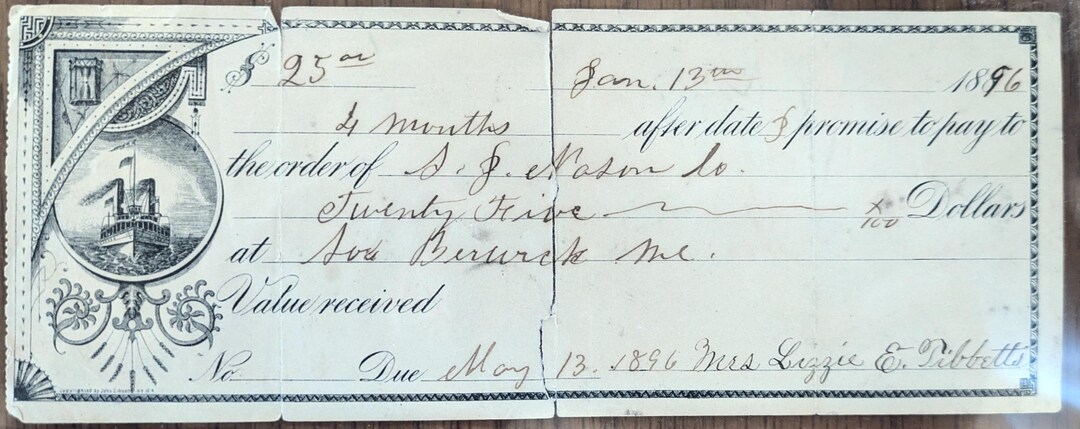 $ 25 00 Jan. 13th 1896
4 months after date I promise to pay to
the order of S. J. Nason Co.
Twenty Five x/100 Dollars
at So. Berwick Me.
Value received
No. Due May 13. 1896 Mrs Lizzie E. Tibbetts